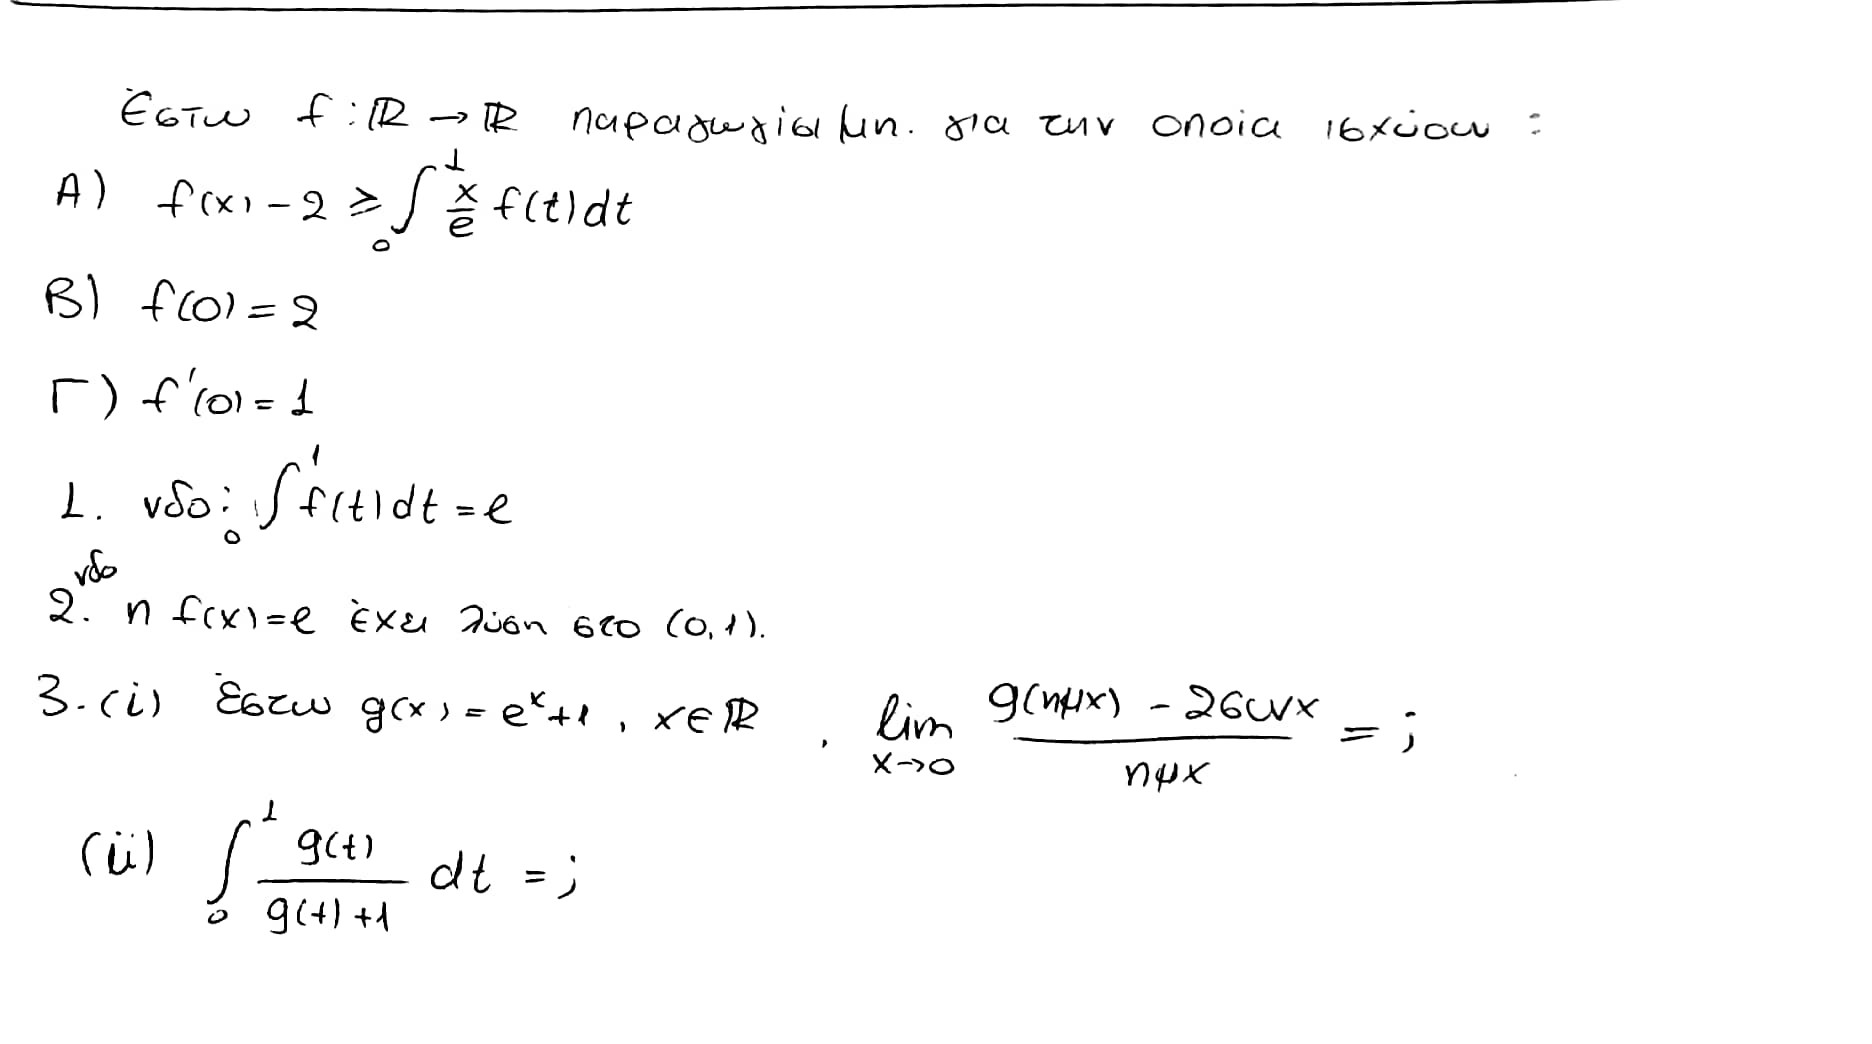 Έστω f: ℝ → ℝ παραγωγίσιμη. για την οποία ισχύουν :
Α) f(x) - 2 ≥ ∫₀¹ x/e f(t)dt
Β) f(0) = 2
Γ) f'(0) = 1
1. νδο: ∫₀¹ f(t)dt = e
νδο
2. η f(x)=e έχει λύση στο (0,1).
3. (i) Έστω g(x) = eˣ+1 , x∈ℝ , lim x→0 g(ημx) - 2συνx / ημx = ;
(ii) ∫₀¹ g(t) / g(t)+1 dt = ;